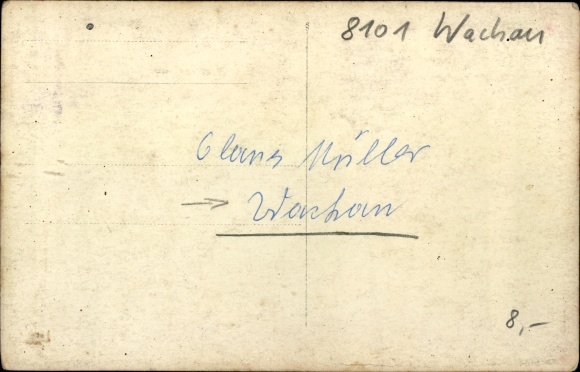 8101 Wachau
Claus Müller
→ Wachau
8,-